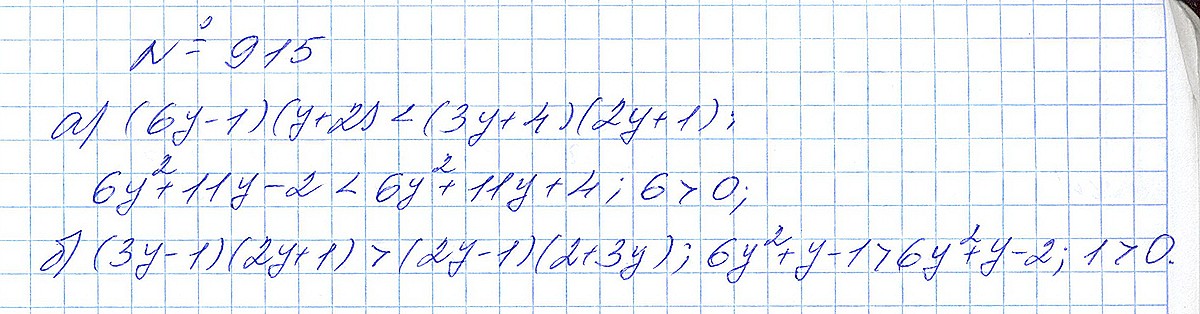 № 915
а) (6y-1)(y+2) < (3y+4)(2y+1);
6y²+11y-2 < 6y²+11y+4; 6>0;
б) (3y-1)(2y+1) > (2y-1)(2+3y); 6y²+y-1>6y²+y-2; 1>0.